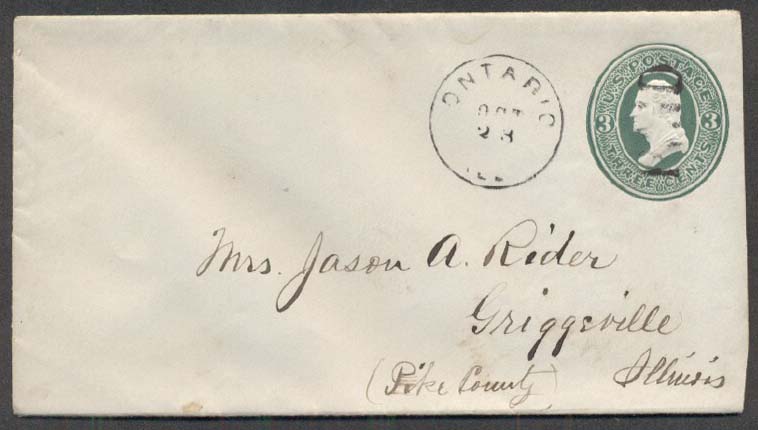 ONTARIO
OCT
23
ILL
U.S. POSTAGE
3 3
THREE CENTS
Mrs. Jason A. Rider
Griggsville
(Pike County) Illinois